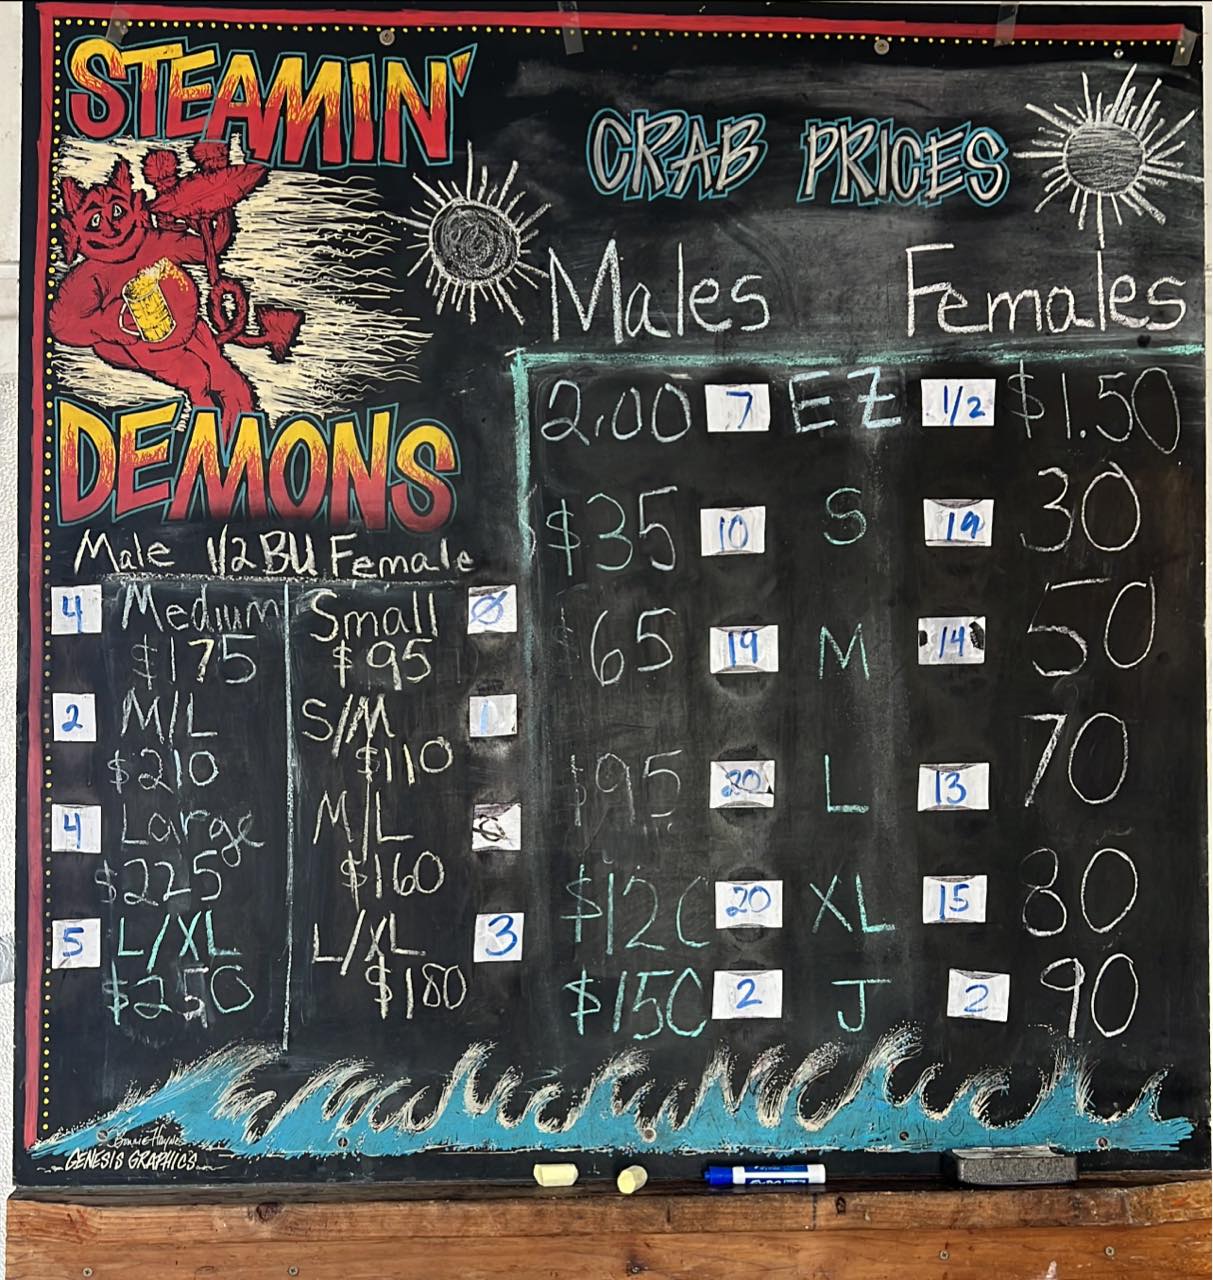 STEAMIN'
DEMONS
CRAB PRICES
Males Females
2.00 7 EZ 1/2 $1.50
$35 10 S 19 30
$65 19 M 14 50
$95 20 L 13 70
$120 20 XL 15 80
$150 2 J 2 90
Male 1/2 BU Female
4 Medium Small 0
$175 $95
2 M/L S/M 1
$210 $110
4 Large M/L
$225 $160
5 L/XL L/XL 3
$250 $180
Bonnie Haynes
GENESIS GRAPHICS
EXPO